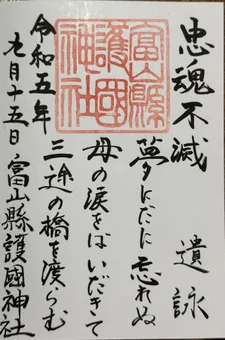 忠魂不滅
遺詠
夢にだに忘れぬ
母の涙をばいだきて
三途の橋を渡らむ
令和五年
九月十五日
富山縣護國神社
富山縣
護國
神社